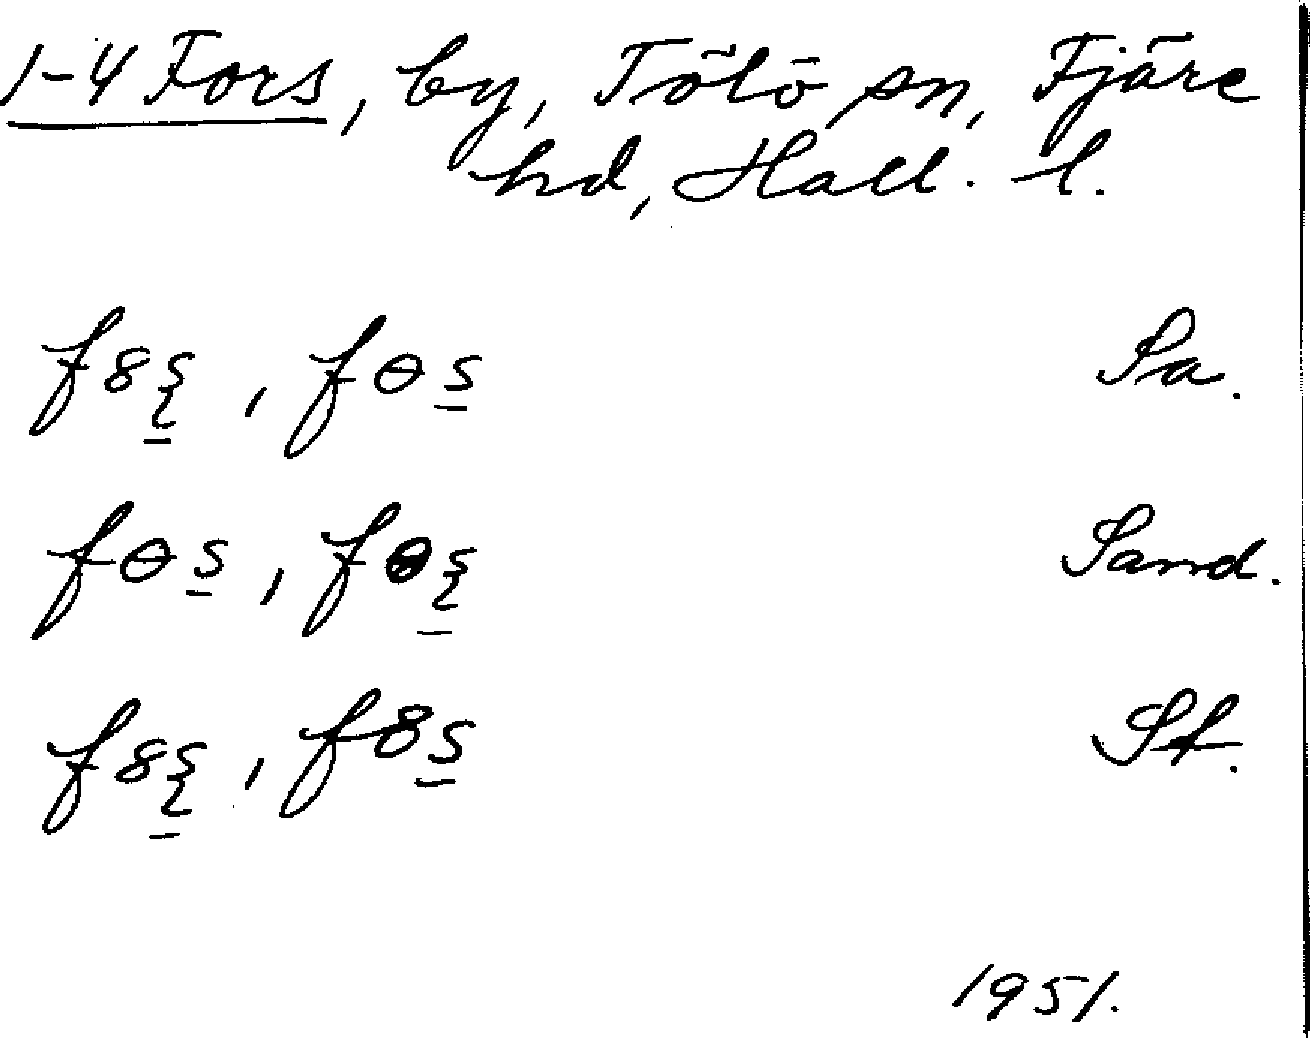 1-4 Fors, by, Tölö sn, Fjäre
hd, Hall. l.
f8ʂ̱, fɵs̱ Sa.
fɵs̱, fɵʂ̱ Sand.
f8ʂ̱, f8s̱ St.
1951.